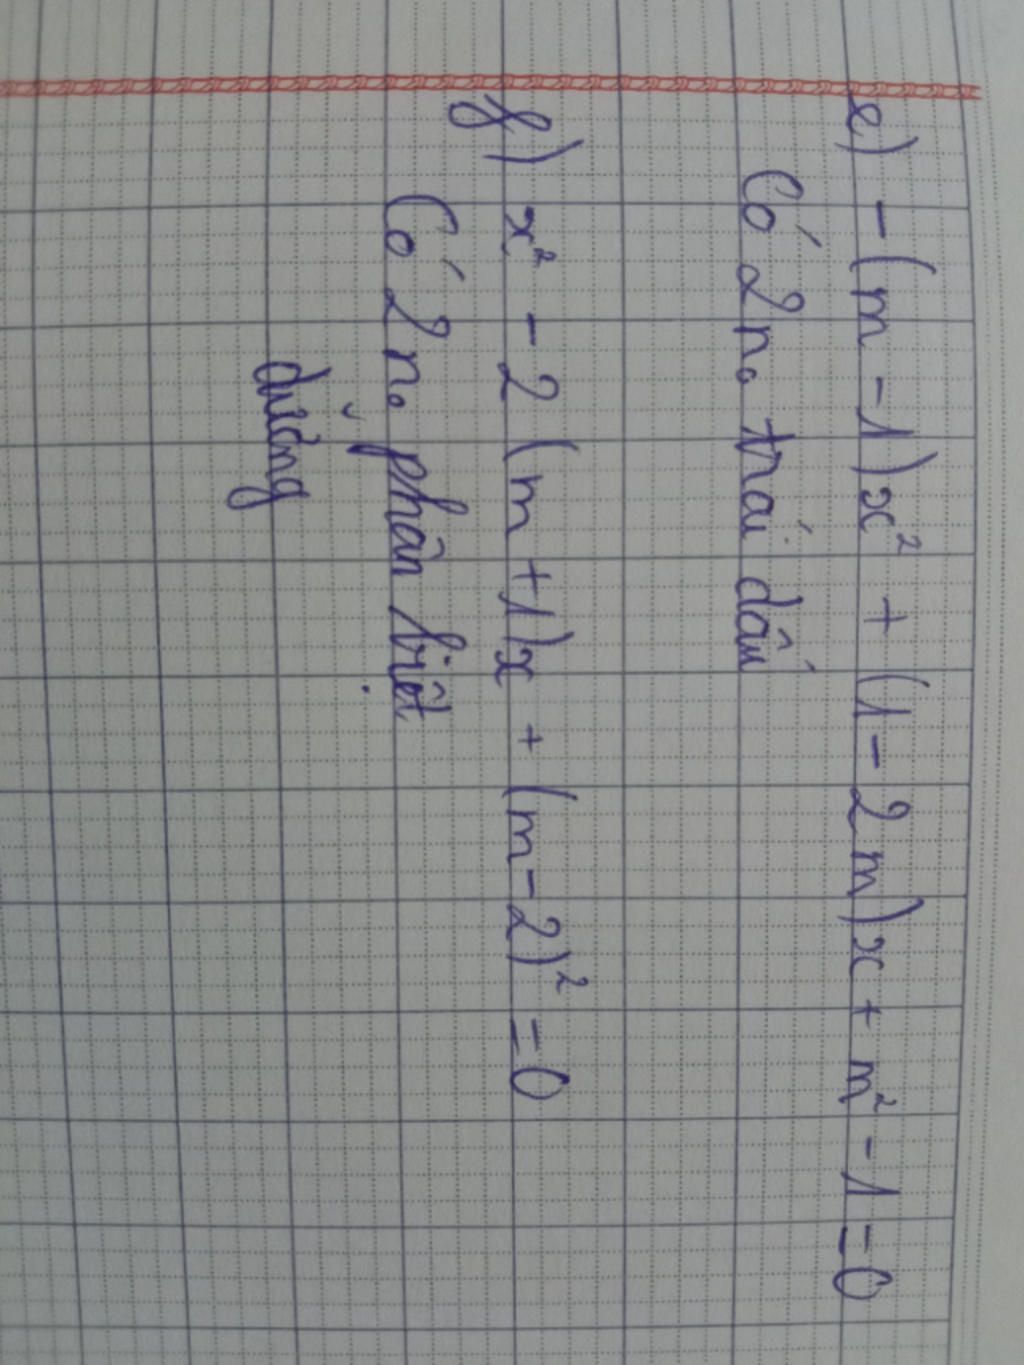 e) - (m - 1)x² + (1 - 2m)x + m² - 1 = 0
Có 2 n₀ trái dấu
f) x² - 2(m + 1)x + (m - 2)² = 0
Có 2 n₀ phân biệt
dương